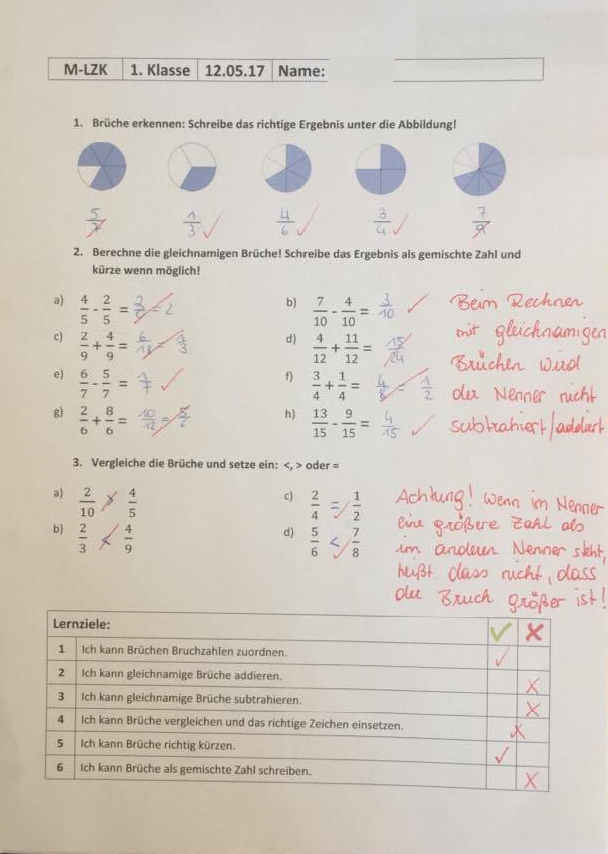 M-LZK 1. Klasse 12.05.17 Name:
1. Brüche erkennen: Schreibe das richtige Ergebnis unter die Abbildung!
5/7 1/3 4/6 3/4 7/9
2. Berechne die gleichnamigen Brüche! Schreibe das Ergebnis als gemischte Zahl und
kürze wenn möglich!
a) 4/5 - 2/5 = 2/0 = 2
b) 7/10 - 4/10 = 3/10
c) 2/9 + 4/9 = 6/18 = 1/3
d) 4/12 + 11/12 = 15/24
e) 6/7 - 5/7 = 1/7
f) 3/4 + 1/4 = 4/8 = 1/2
g) 2/6 + 8/6 = 10/12 = 5/6
h) 13/15 - 9/15 = 4/15
Beim Rechnen
mit gleichnamigen
Brüchen wird
der Nenner nicht
subtrahiert/addiert
3. Vergleiche die Brüche und setze ein: <, > oder =
a) 2/10 > 4/5
c) 2/4 = 1/2
b) 2/3 < 4/9
d) 5/6 < 7/8
Achtung! Wenn im Nenner
eine größere Zahl als
im anderen Nenner steht,
heißt dass nicht, dass
der Bruch größer ist!
Lernziele: ✓ ✗
1 Ich kann Brüchen Bruchzahlen zuordnen.
2 Ich kann gleichnamige Brüche addieren.
3 Ich kann gleichnamige Brüche subtrahieren.
4 Ich kann Brüche vergleichen und das richtige Zeichen einsetzen.
5 Ich kann Brüche richtig kürzen.
6 Ich kann Brüche als gemischte Zahl schreiben.